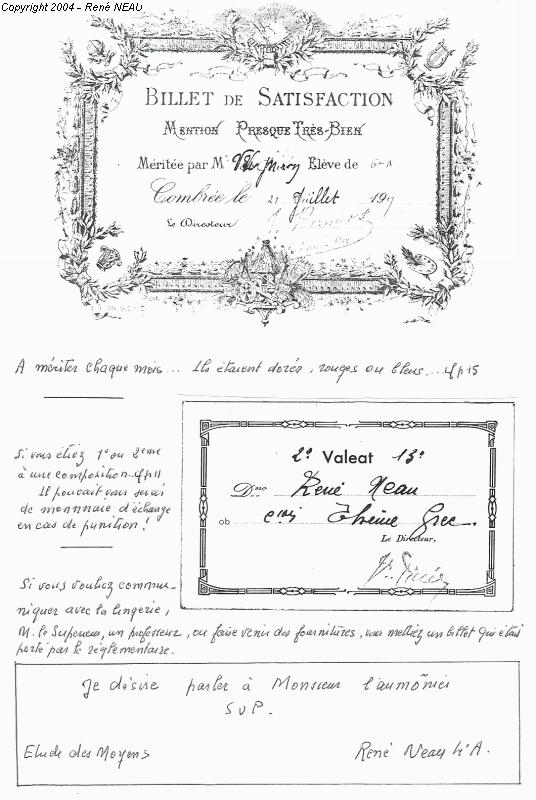 Copyright 2004 - René NEAU
BILLET DE SATISFACTION
MENTION PRESQUE TRÈS-BIEN
Méritée par Mr Elève de 6e A
Combrée le 21 Juillet 191
Le Directeur
A mériter chaque mois... Ils étaient dorés, rouges ou bleus... cf p 15
Si vous étiez 1e ou 2ème
à une composition. cf p 11
Il pouvait vous servir
de monnaie d'échange
en cas de punition !
2e Valeat 13e
Dno René Neau
ob Thème Grec.
Le Directeur,
Si vous vouliez commu-
niquer avec la lingerie,
M. le Supérieur, un professeur, ou faire venir des fournitures, vous mettiez un billet qui était
porté par le réglementaire.
Je désire parler à Monsieur l'aumônier
S V P.
Etude des Moyens
René Neau 4e A.